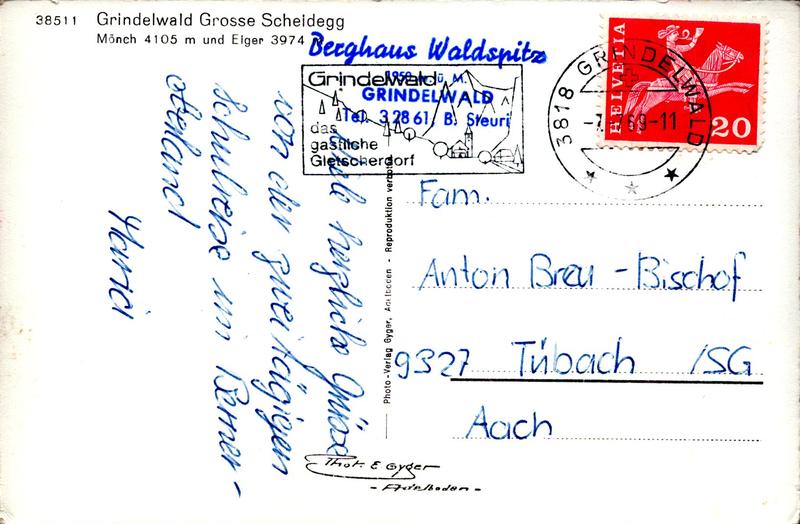 38511 Grindelwald Grosse Scheidegg
Mönch 4105 m und Eiger 3974
Berghaus Waldspitz
1950 ü. M.
GRINDELWALD
Tel. 3 28 61 B. Steuri
Grindelwald
das
gastliche
Gletscherdorf
3818 GRINDELWALD
-7.-7.69-11
HELVETIA
20
viele herzliche Grüsse
von der zweitägigen
Schulreise im Berner-
oberland
Photo-Verlag Gyger, Adelboden - Reproduktion verboten
Fam.
Anton Breu - Bischof
9327 Tübach /SG
Aach
Phot. E. Gyger
- Adelboden -